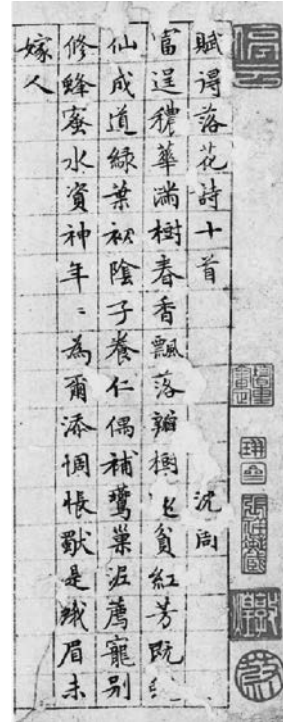 賦得落花詩十首 沈周
富逞穠華滿樹春香飄落瓣樹貧紅芳既
仙成道綠葉初陰子養仁偶補鶯巢泥薦寵別
修蜂蜜水資神年〻為爾添惆悵是蛾眉未
嫁人